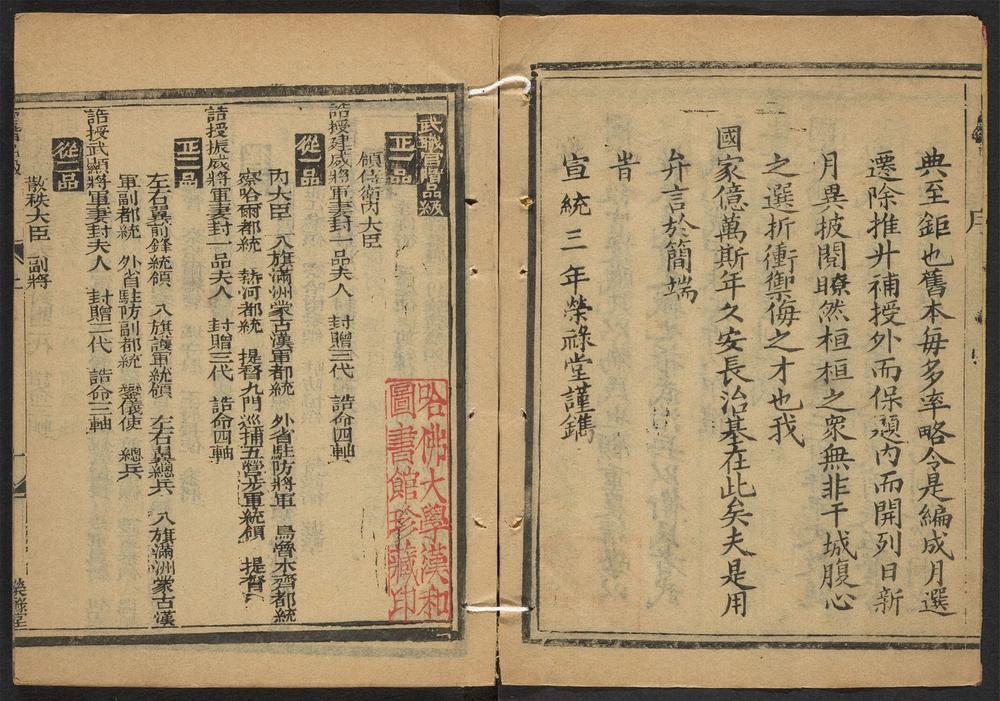 序
典至鉅也舊本每多率略今是編成月選
遷除推升補授外而保題內而開列日新
月異披閱瞭然桓桓之衆無非干城腹心
之選折衝禦侮之才也我
國家億萬斯年久安長治基在此矣夫是用
弁言於簡端
旹
宣統三年榮祿堂謹鐫
武職官員品級
正一品
領侍衛內大臣
誥授建威將軍妻封一品夫人 封贈三代 誥命四軸
從一品
內大臣 八旗滿洲蒙古漢軍都統 外省駐防將軍 烏魯木齊都統
察哈爾都統 熱河都統 提督九門巡捕五營步軍統領 提督
誥授振威將軍妻封一品夫人 封贈三代 誥命四軸
正二品
左右翼前鋒統領 八旗護軍統領 左右翼總兵 八旗滿洲蒙古漢
軍副都統 外省駐防副都統 鑾儀使 總兵
誥授武顯將軍妻封夫人 封贈二代 誥命三軸
從二品
散秩大臣 副將
榮祿堂
哈佛大學漢和
圖書館珍藏印